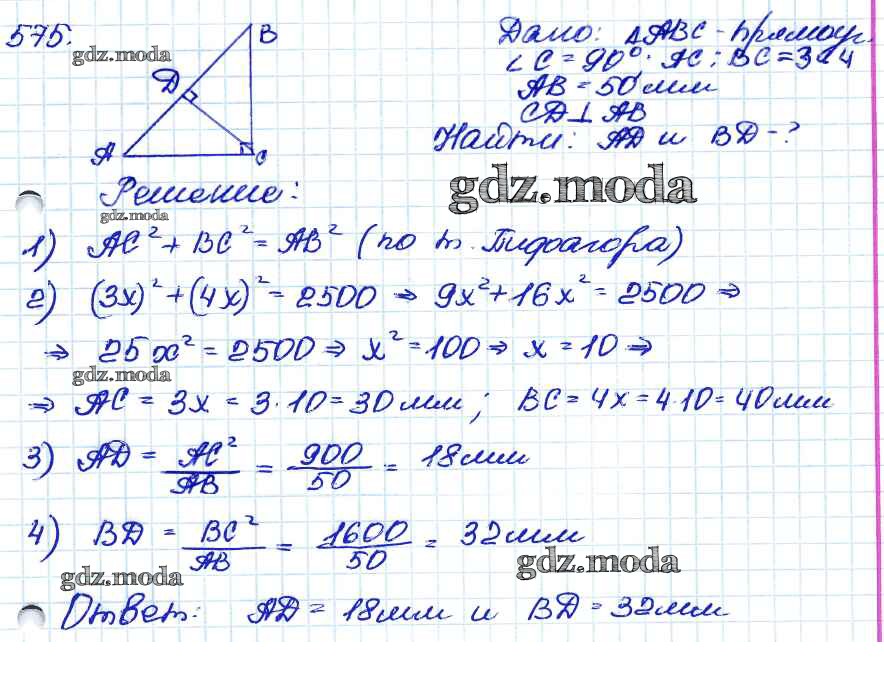 575.
gdz.moda
B
D
A
C
Дано: ΔABC - прямоуг.
∠C = 90°. AC : BC = 3 : 4
AB = 50 мм
CD ⊥ AB
Найти: AD и BD - ?
gdz.moda
Решение:
gdz.moda
1) AC² + BC² = AB² (по т. Пифагора)
2) (3x)² + (4x)² = 2500 ⇒ 9x² + 16x² = 2500 ⇒
⇒ 25x² = 2500 ⇒ x² = 100 ⇒ x = 10 ⇒
gdz.moda
⇒ AC = 3x = 3·10 = 30 мм; BC = 4x = 4·10 = 40 мм
3) AD = AC²/AB = 900/50 = 18 мм
4) BD = BC²/AB = 1600/50 = 32 мм
gdz.moda
gdz.moda
Ответ: AD = 18 мм и BD = 32 мм